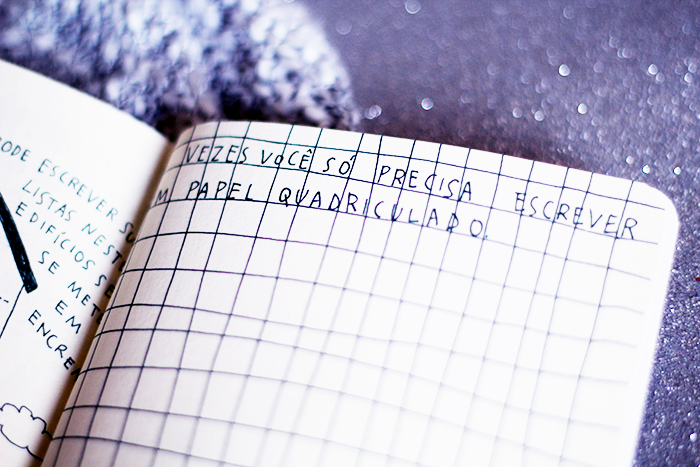 ODE ESCREVER
LISTAS NEST
EDIFÍCIOS SE
SE MET
EM
ENCRE
VEZES VOCÊ SÓ PRECISA ESCREVER
M PAPEL QUADRICULADO.